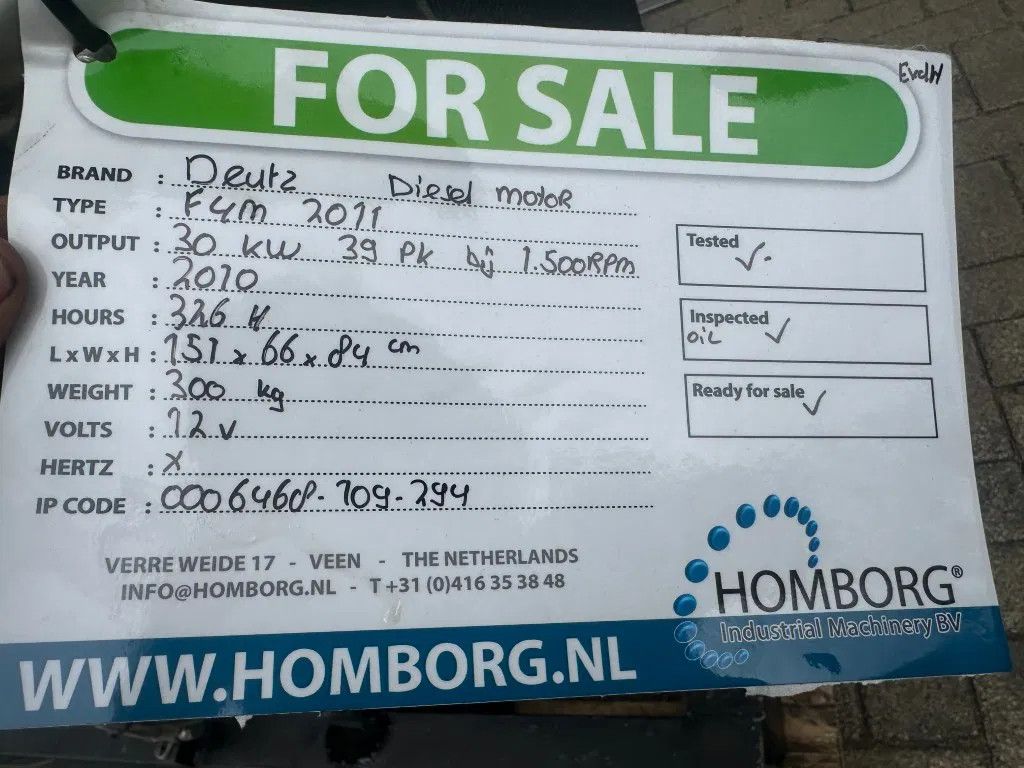 FOR SALE
EvdH
BRAND : Deutz Diesel motor
TYPE : F4m 2011
OUTPUT : 30 kW 39 Pk bij 1.500RPM
YEAR : 2010
HOURS : 326 H
L x W x H : 151 x 66 x 84 cm
WEIGHT : 300 kg
VOLTS : 12 v
HERTZ : x
IP CODE : 0006468-109-294
Tested ✓
Inspected ✓
oil
Ready for sale ✓
VERRE WEIDE 17 - VEEN - THE NETHERLANDS
INFO@HOMBORG.NL - T +31 (0)416 35 38 48
HOMBORG®
Industrial Machinery BV
WWW.HOMBORG.NL